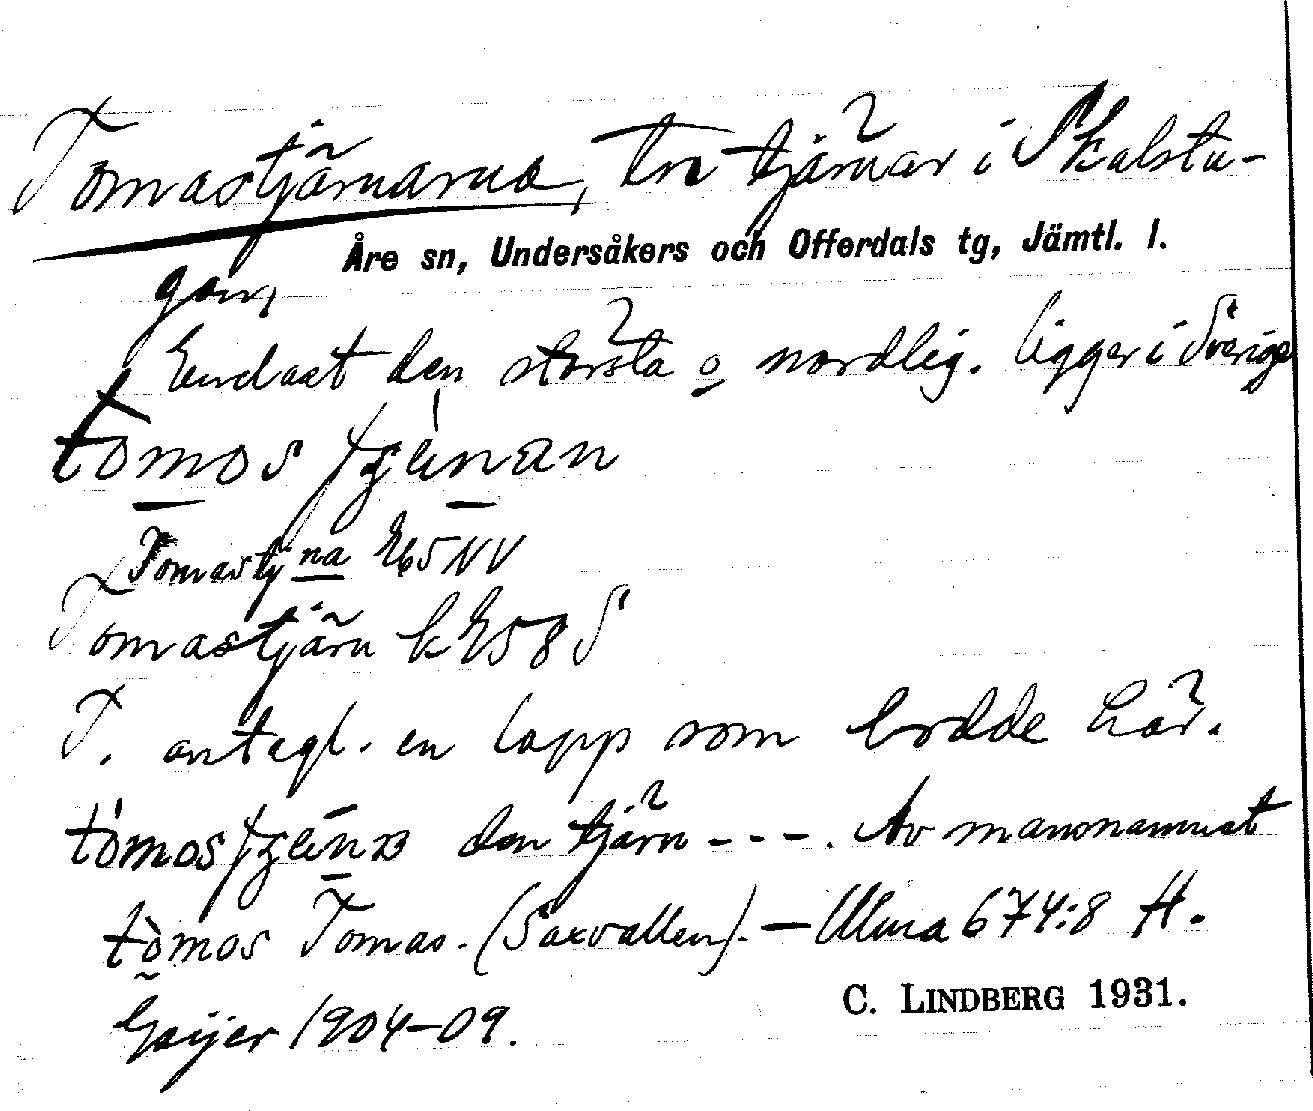 Tomastjärnarna, tre tjärnar i Skalstu-
Åre sn, Undersåkers och Offerdals tg, Jämtl. l.
gan,
Endast den största o nordlig. ligger i Sverige
tomos
Tomastjna K65NV
Tomastjärn k K58 S
T. antagl. en lapp som bodde här.
den tjärn - - -. Av mansnamnet
tòmos Tomas. (Saxvallen). – Ulma 674:8 H.
C. LINDBERG 1931.
Geijer 1904–09.